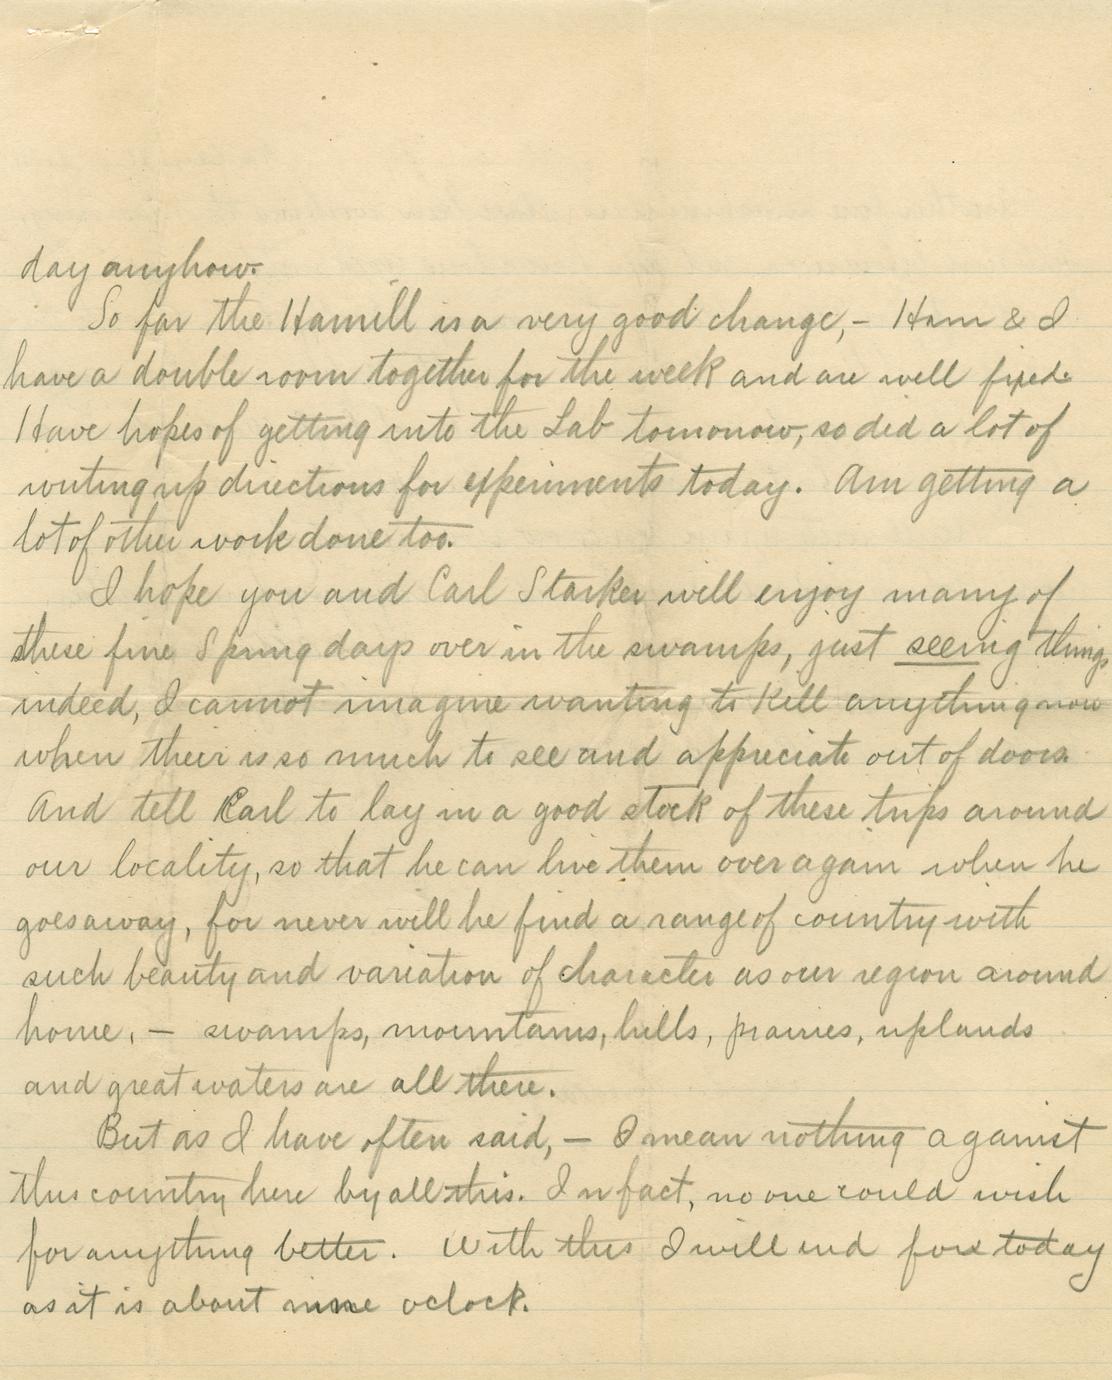 day anyhow.
So far the Hamill is a very good change,- Ham & I
have a double room together for the week and are well fixed.
Have hopes of getting into the Lab tomorrow, so did a lot of
writing up directions for experiments today. Am getting a
lot of other work done too.
I hope you and Carl Starker will enjoy many of
these fine Spring days over in the swamps, just seeing things
indeed, I cannot imagine wanting to kill anything now
when their is so much to see and appreciate out of doors.
And tell Carl to lay in a good stock of these trips around
our locality, so that he can live them over again when he
goes away, for never will he find a range of country with
such beauty and variation of character as our region around
home, - swamps, mountains, hills, prairies, uplands
and great waters are all there.
But as I have often said, - I mean nothing against
this country here by all this. In fact, no one could wish
for anything better. With this I will end for today
as it is about nine oclock.